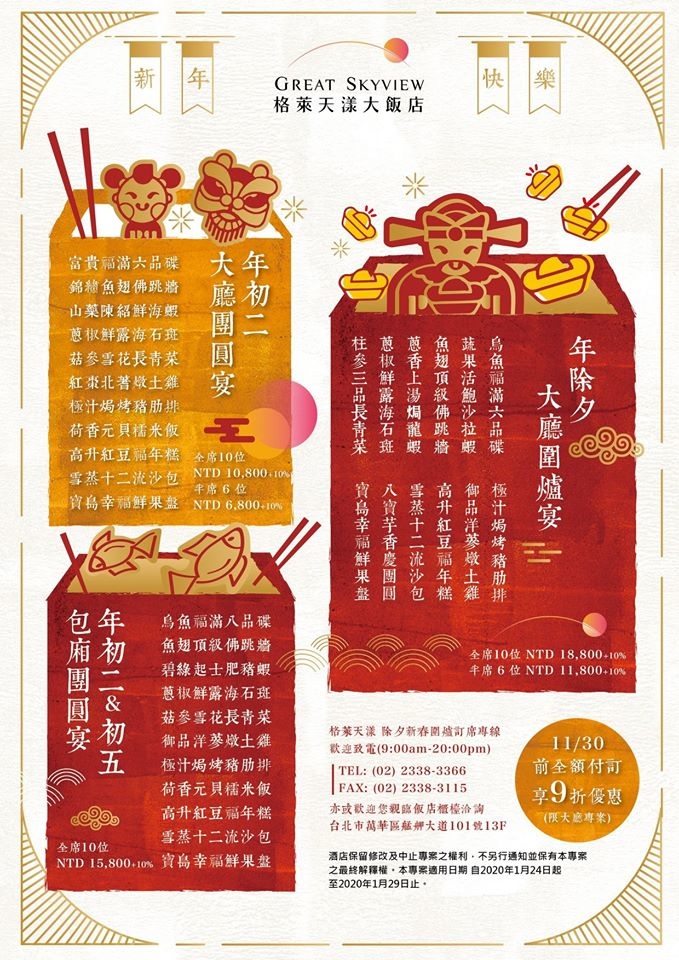 新
年
快
樂
GREAT SKYVIEW
格萊天漾大飯店
年初二
大廳團圓宴
富貴福滿六品碟
錦繡魚翅佛跳牆
山藥陳紹鮮海蝦
蔥椒鮮露海石斑
菇參雪花長青菜
紅棗北蓍燉土雞
極汁焗烤豬肋排
荷香元貝糯米飯
高升紅豆福年糕
雪蒸十二流沙包
寶島幸福鮮果盤
全席10位
NTD 10,800+10%
半席 6 位
NTD 6,800+10%
年除夕
大廳圍爐宴
烏魚福滿六品碟
蔬果活鮑沙拉蝦
魚翅頂級佛跳牆
蔥香上湯焗龍蝦
蔥椒鮮露海石斑
柱參三品長青菜
極汁焗烤豬肋排
御品洋蔘燉土雞
高升紅豆福年糕
雪蒸十二流沙包
八寶芋香慶團圓
寶島幸福鮮果盤
全席10位 NTD 18,800+10%
半席 6 位 NTD 11,800+10%
年初二&初五
包廂團圓宴
烏魚福滿八品碟
魚翅頂級佛跳牆
碧綠起士肥豬蝦
蔥椒鮮露海石斑
菇參雪花長青菜
御品洋蔘燉土雞
極汁焗烤豬肋排
荷香元貝糯米飯
高升紅豆福年糕
雪蒸十二流沙包
寶島幸福鮮果盤
全席10位
NTD 15,800+10%
格萊天漾 除夕新春圍爐訂席專線
歡迎致電(9:00am-20:00pm)
TEL: (02) 2338-3366
FAX: (02) 2338-3115
亦或歡迎您親臨飯店櫃檯洽詢
台北市萬華區艋舺大道101號13F
11/30
前全額付訂
享9折優惠
(限大廳專案)
酒店保留修改及中止專案之權利，不另行通知並保有本專案
之最終解釋權。本專案適用日期 自2020年1月24日起
至2020年1月29日止。